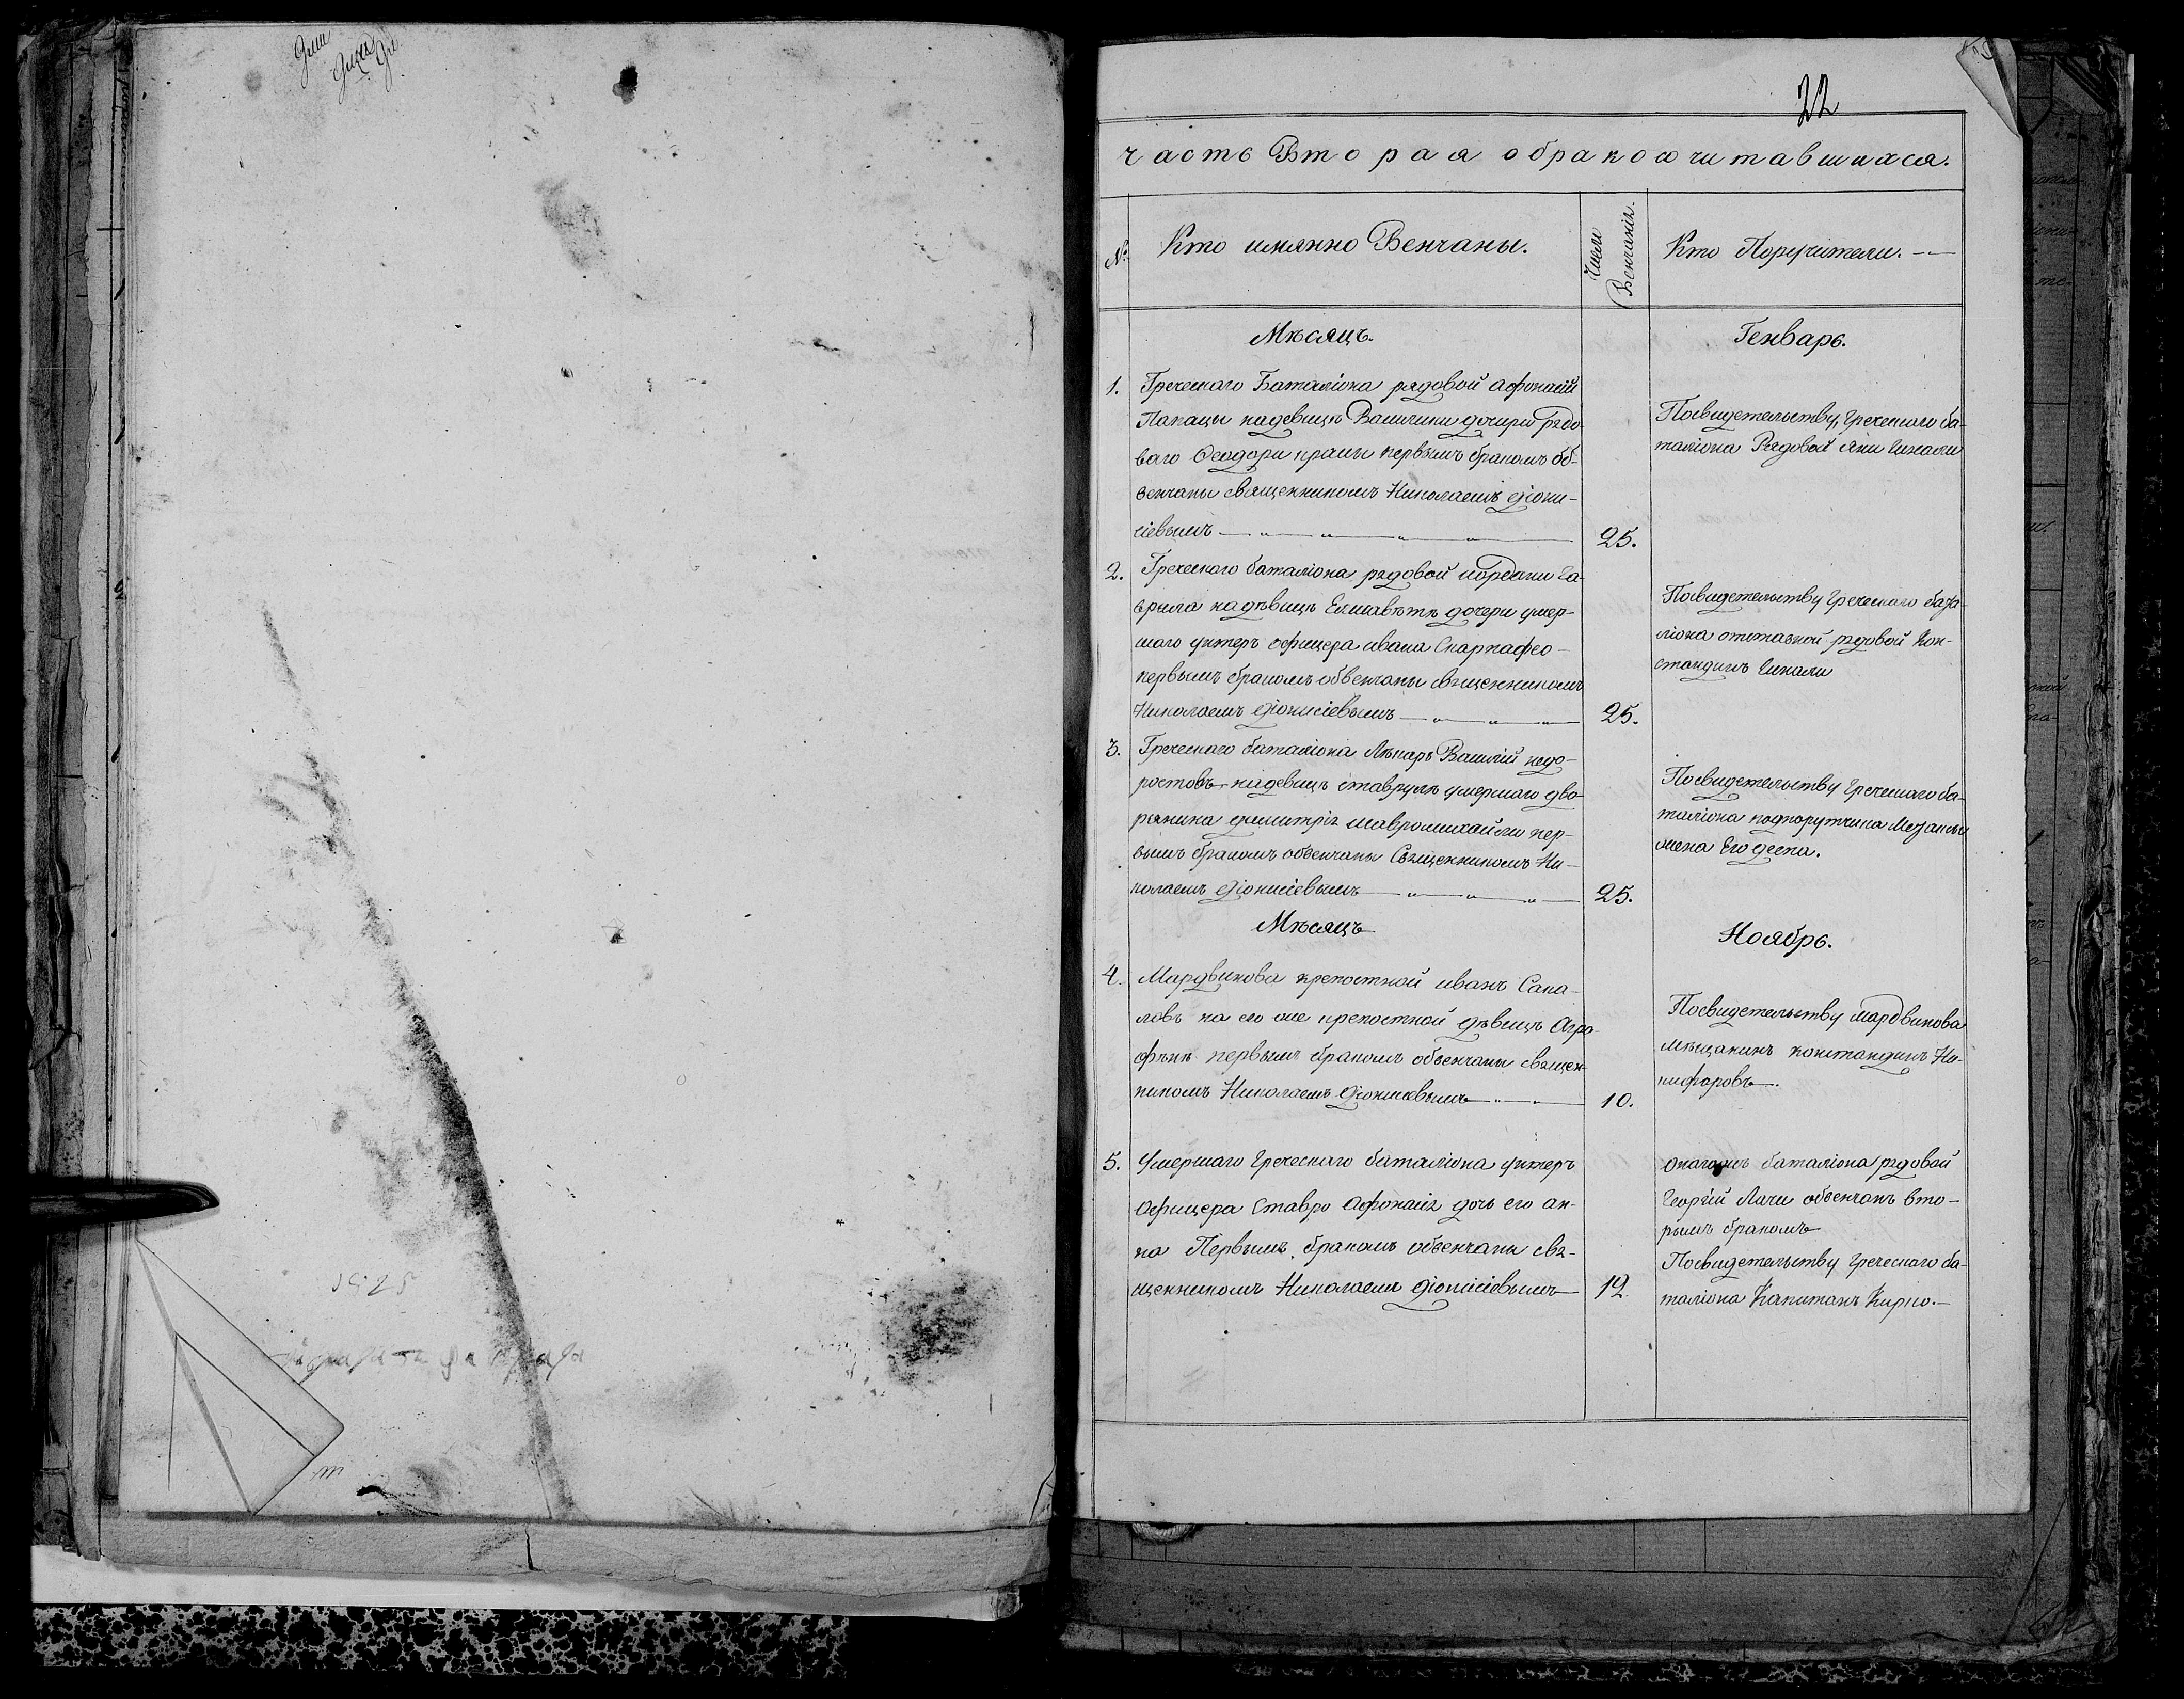 22
часть Вторая обракосочитавшихся.
№
Кто имянно Венчаны.
Число Венчанія.
Кто Поручители.
Мѣсяцъ.
Генварь.
1. Греческаго Баталіона рядовой Афонасій
Папацы надевицѣ Василики дочири рядо-
ваго Феодори первымъ бракомъ об-
венчаны священникомъ Николаемъ Діони-
сіевымъ
25.
Посвидетельству Греческаго ба-
таліона Рядовой Яни
2. Греческаго баталіона рядовой иордани Га-
врила надѣвицѣ Елисавѣтѣ дочери умер-
шаго унтеръ офицера ивана
первымъ бракомъ обвенчаны священникомъ
Николаемъ Діонисіевымъ
25.
Посвидетельству Греческаго бата-
ліона отставной рядовой Кон-
стандинъ
3. Греческаго баталіона Лѣкарь Василій недо-
ростовъ надевицѣ ставрулѣ умершаго дво-
рянина димитрія мавромихайли пер-
вымъ бракомъ обвенчаны Священникомъ Ни-
колаемъ Діонисіевымъ
25.
Посвидетельству Греческаго ба-
таліона подпорутчика
Мѣсяцъ
Ноябрь.
4. Мардвинова крепостной иванъ Сапа-
ловъ на его же крепостной дѣвицѣ Агра-
фѣнѣ первымъ бракомъ обвенчаны священ-
никомъ Николаемъ Діонисіевымъ
10.
Посвидетельству мардвинова
мѣщанинъ констандинъ Ни-
кифаровъ.
5. Умершаго Греческаго баталіона унтеръ
Афицера Ставро Афонасія дочь его ан-
на Первымъ бракомъ обвенчаны свя-
щенникомъ Николаемъ Діонисіевымъ
12.
баталіона рядовой
Георгій Личи обвенчанъ вто-
рымъ бракомъ
Посвидетельству Греческаго ба-
таліона Капитанъ Кирко.